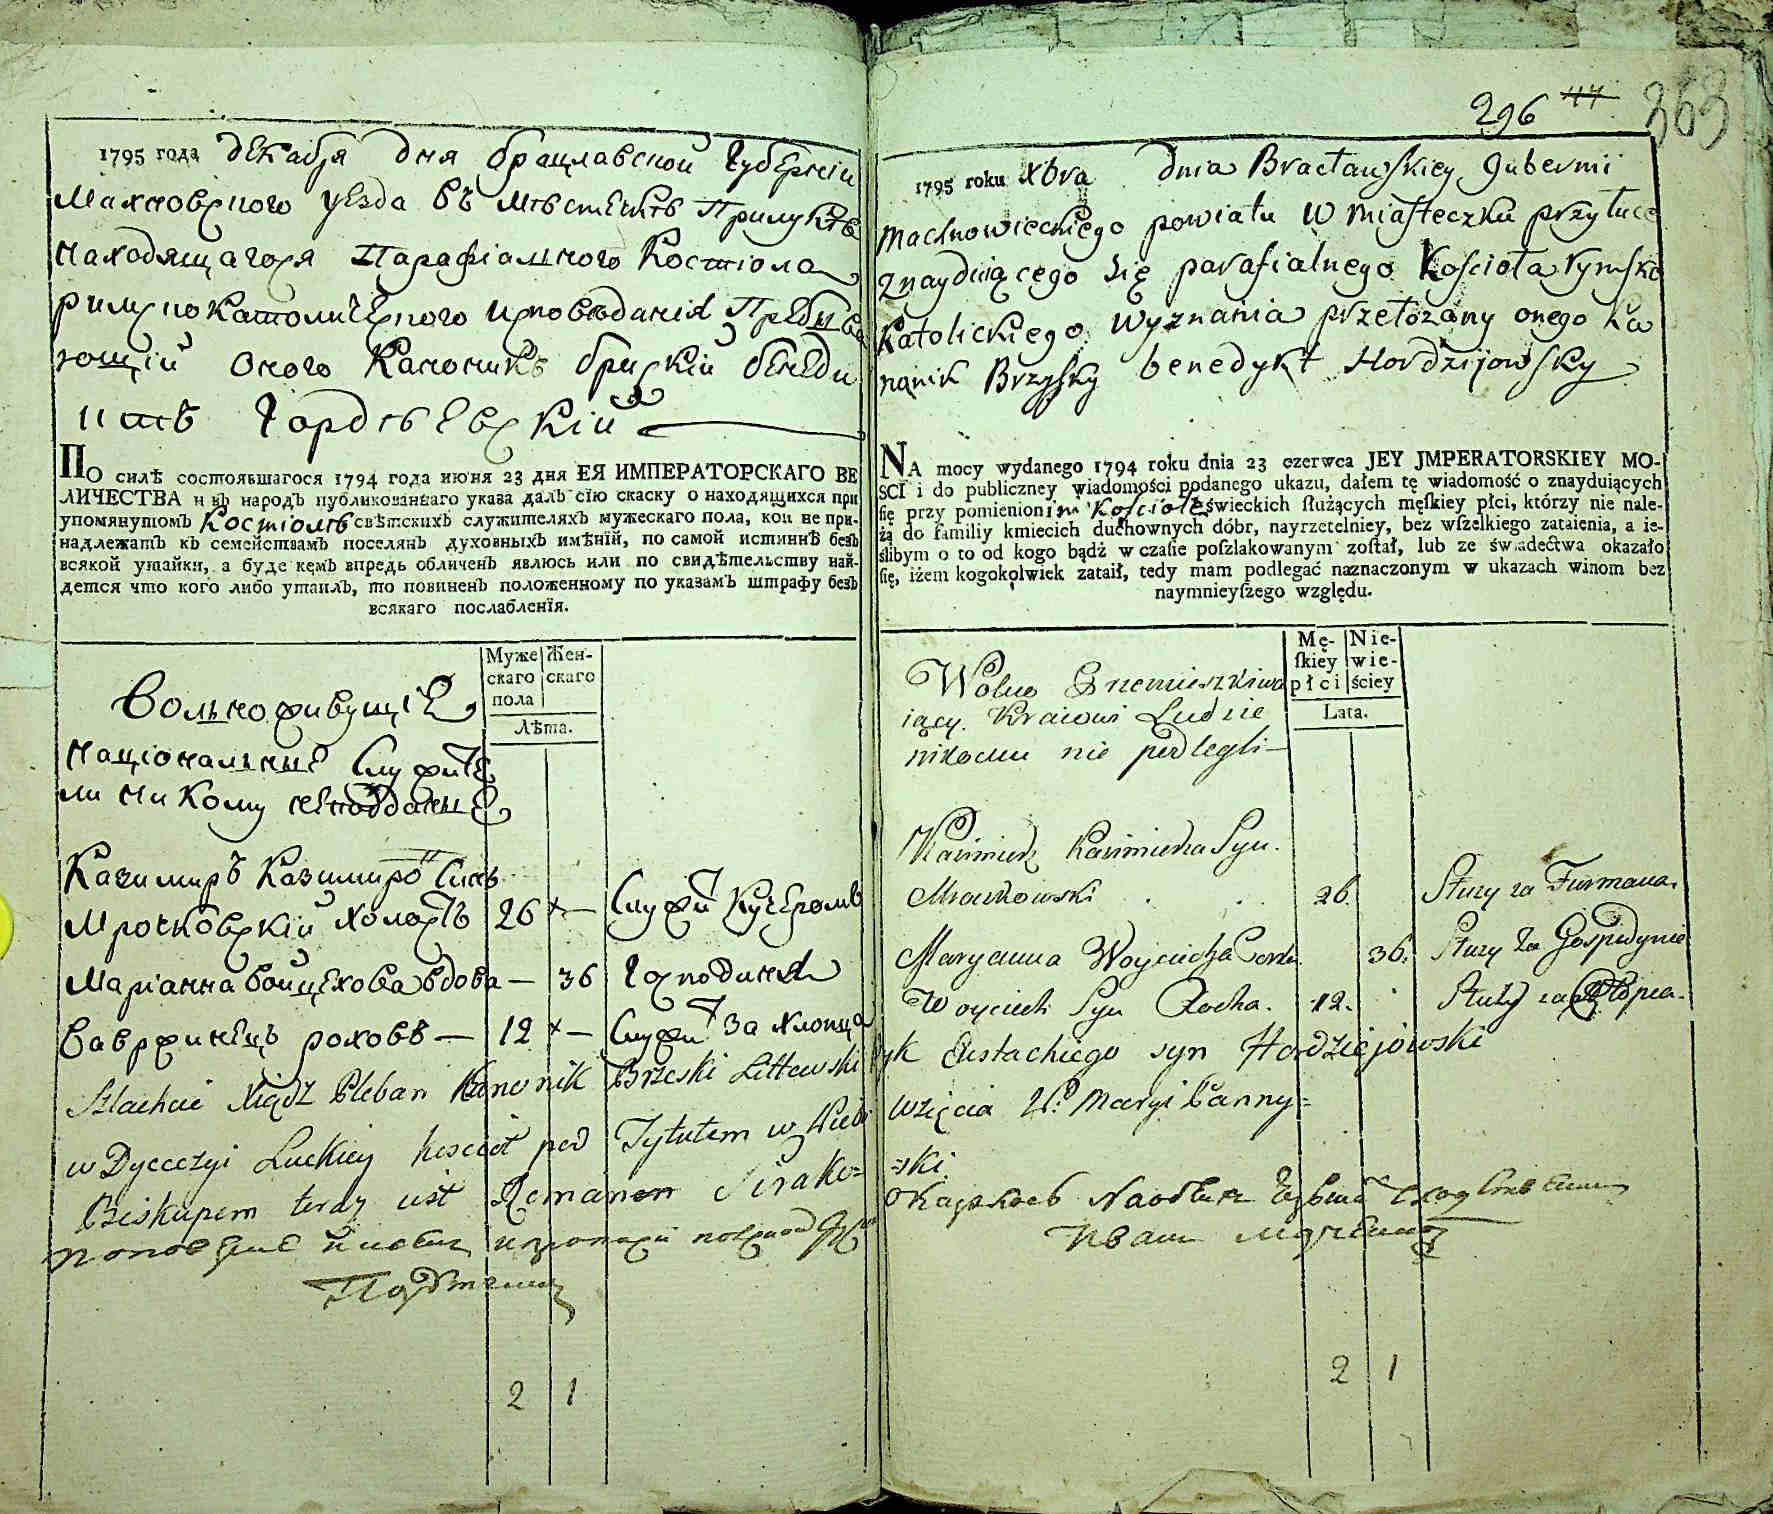 1795 года декабря дня брацлавской Губернїи
Махновского уезда въ мѣстечкѣ Прилукѣ
находящагося Парафїального Костїола
римскокатолического исповѣданїя Пребыва
ющїй оного Каноникъ брискїй бенеди
иктъ Гордѣевскїй
ПО силѣ состоявшагося 1794 года июня 23 дня ЕЯ ИМПЕРАТОРСКАГО ВЕ
ЛИЧЕСТВА и въ народъ публикованнаго указа далъ сїю скаску о находящихся при
упомянутомъ Костїолѣ свѣтскихъ служителяхъ мужескаго пола, кои не при-
надлежатъ къ семействамъ поселянъ духовныхъ имѣнїй, по самой истиннѣ безъ
всякой утайки, а буде кемъ впредь обличенъ явлюсь или по свидѣтельству най-
дется что кого либо утаилъ, то повиненъ положенному по указамъ штрафу безъ
всякаго послабленїя.
Муже Жен-
скаго скаго
пола
Лѣта.
вольноживущїе
нацїональные служите
ли никому неподданые
Казимиръ Казимировъ Сынъ
Мрочковскїй холостъ 26 — Служитъ Кучеромъ
Марїанна войцехова вдова — 36 Господыня
Вавржинецъ роховъ — 12 — Служитъ за хлопца
Szlachcic Xiądz Pleban Kanonik Brzeski Littewski
w Dyecezyi Luckiey kosciół pod Tytułem w Niebo
Biskupem teraz iest Roman Sirako=
2 1
296 44 363
1795 roku Xbra dnia Bracławskiey Gubernii
Machnowieckiego powiatu W miasteczku przyłuce
znayduiącego się parafialnego Kościoła rymsko
Katolickiego Wyznania przełożony onego Ka
nonik Brzysky benedykt Hordzijowsky
NA mocy wydanego 1794 roku dnia 23 czerwca JEY JMPERATORSKIEY MO-
SCI i do publiczney wiadomości podanego ukazu, dałem tę wiadomość o znayduiących
się przy pomienionim Kościole świeckich służących męskiey płci, którzy nie nale-
żą do familiy kmiecich duchownych dóbr, nayrzetelniey, bez wszelkiego zataienia, a ie-
ślibym o to od kogo bądź w czasie poszlakowanym został, lub ze świadectwa okazało
się, iżem kogokolwiek zataił, tedy mam podlegać naznaczonym w ukazach winom bez
naymnieyszego względu.
Mę- Nie-
skiey wie-
płci ściey
Lata.
Wolno Przemieszkiwa
iący Kraiowi Ludzie
nikomu nie podlegli
Kazimierz Kazimierza Syn.
Mroczkowski 26. Służy za Furmana.
Maryanna Woyciecha Corka 36. Służy za Gospodynie
Woyciech Syn Rocha. 12. Służy za Chłopca.
yk Eustachiego syn Hordziejowski
wzięcia N. Maryi Panny=
=ski
2 1